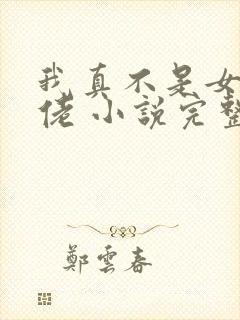 我真不是女
佬 小說完整
鄭雲春